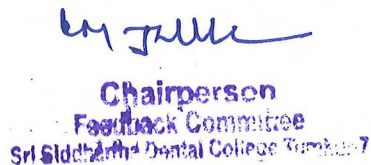 Chairperson
Feedback Committee
Sri Siddhartha Dental College Tumkur-7